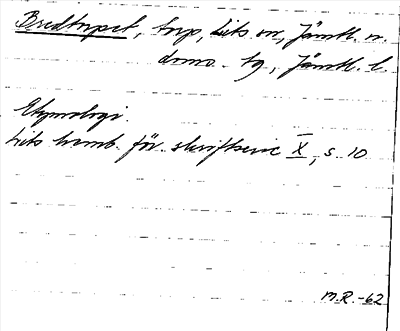 Bredtorpet, torp, Lits sn, Jämtl. n.
doms. tg, Jämtl. l.
Etymologi.
Lits hemb. för. skriftserie X, s. 10
M.R.-62